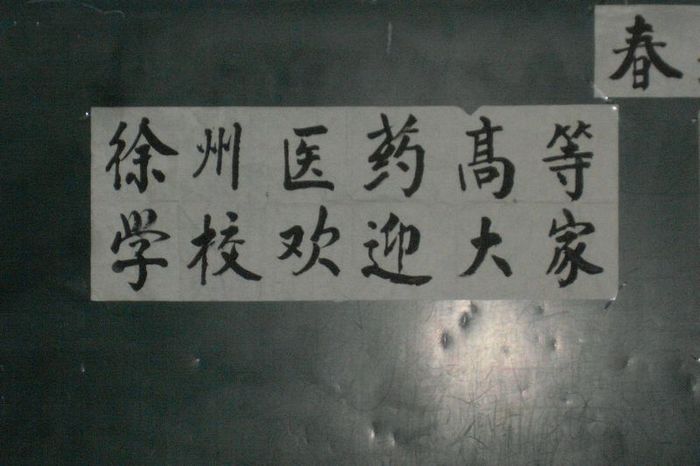 春
徐州医药髙等
学校欢迎大家